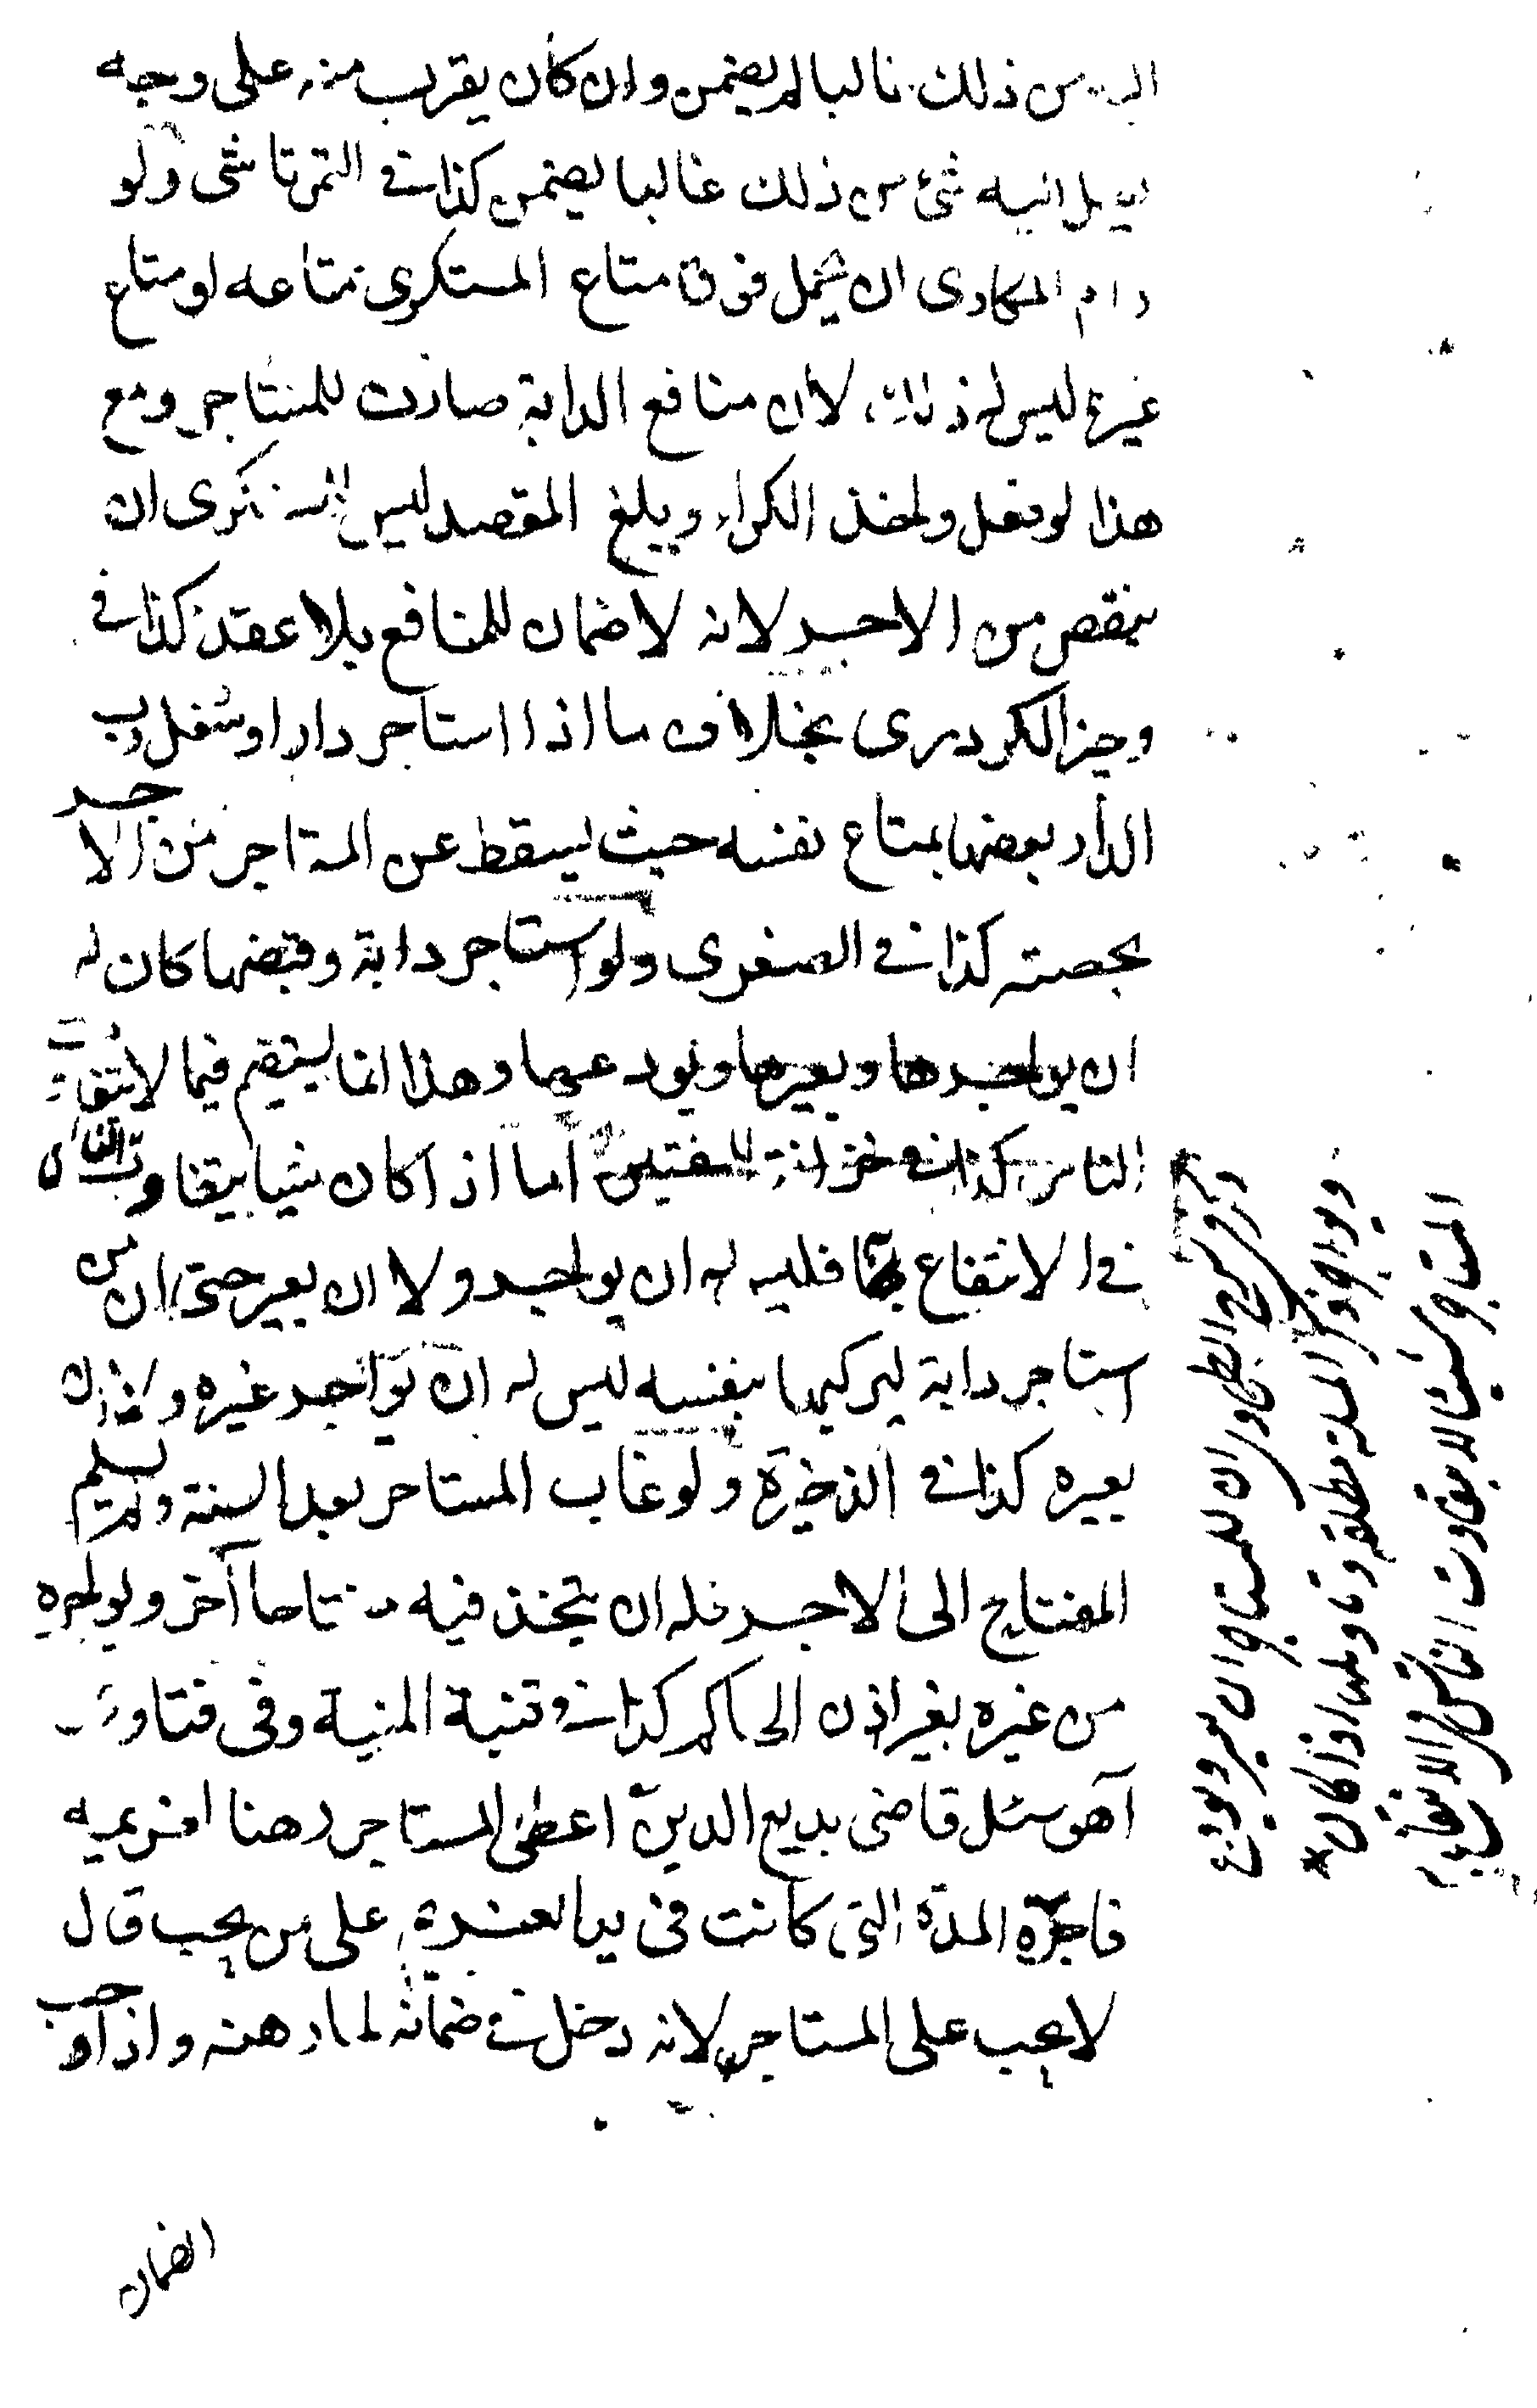 اليه من ذلك غالبا لم يضمن وان كان يقرب منه على وجه
يصل اليه شئ من ذلك غالبا يضمن كذا في التمرتاشى ولو
رام المكارى ان يحمل فوق متاع المستكرى متاعه او متاع
غيره ليس له ذلك لان منافع الدابة صارت للمستاجر ومع
هذا لو فعل واخذ الكراء وبلغ المقصد ليس للمستكرى ان
ينقص من الاجر لانه لا ضمان للمنافع بلا عقد كذا في
وجيز الكردرى بخلاف ما اذا استاجر دارا وشغل رب
الدار بعضها بمتاع نفسه حيث يسقط عن المستاجر من الاجر
بحصته كذا في الصغرى ولو استاجر دابة وقبضها كان له
ان يواجرها ويعيرها ويودعها وهذا انما يستقيم فيما لا يتفاوت
الناس كذا في خزانة المفتين اما اذا كان شيئا يتفاوت الناس
في الانتفاع بها فليس له ان يواجر ولا ان يعير حتى ان من
استاجر دابة ليركبها بنفسه ليس له ان يواجر غيره ولا ان
يعيره كذا في الذخيرة ولو غاب المستاجر بعد السنة ولم يسلم
المفتاح الى الاجر فله ان يتخذ فيه مفتاحا آخر ويواجره
من غيره بغير اذن الحاكم كذا في قنية المنية وفى فتاوى
آهو سئل قاضى بديع الدين اعطى المستاجر رهنا لغريمه
فاجرة المدة التى كانت في يد الغريم على من يجب قال
لا يجب على المستاجر لانه دخل في ضمانه لما رهنه واذا وجب
الضمان
وذكر فى الطحاوى ان للمستاجر ان يعير ويودع
ويواجر المسئلة مطلقة وتاويلها اذا كان
المستاجر شيئا لا يتفاوت الناس فى الانتفاع به